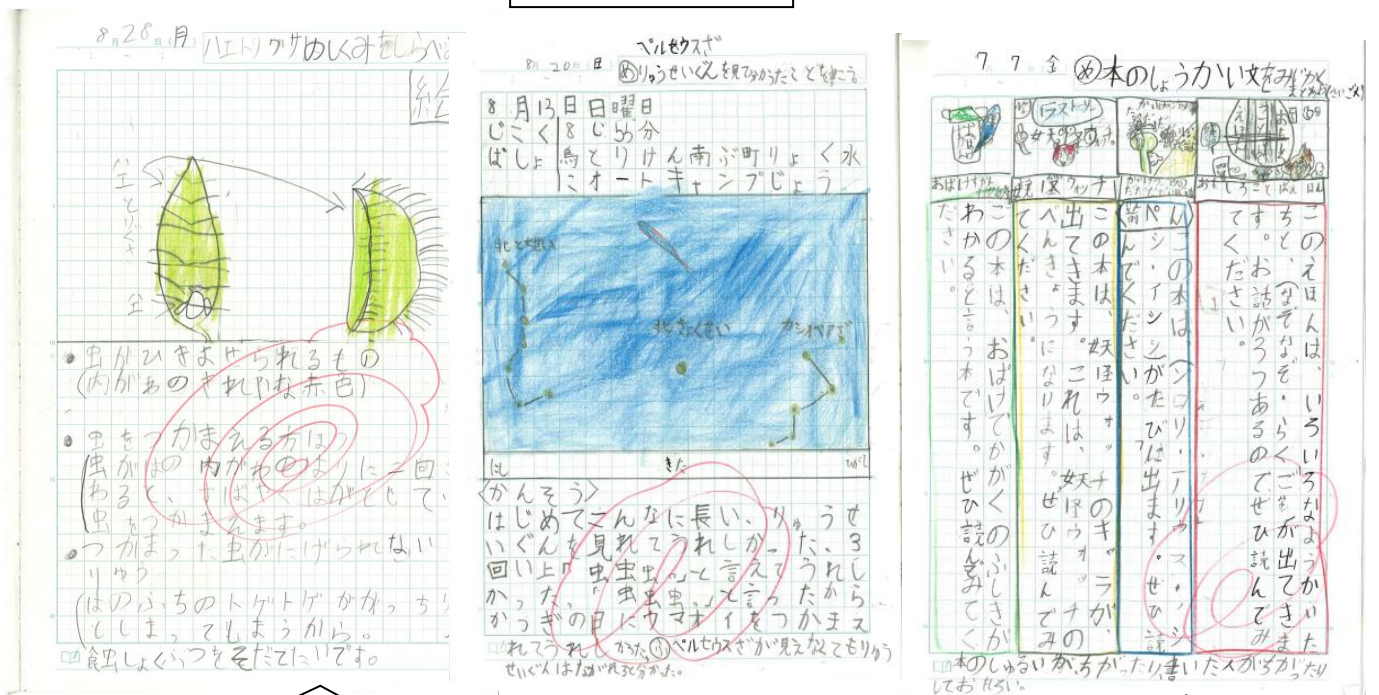 8月28日(月)
ハエトリグサのしくみをしらべ
絵
ハエとりぐさ
虫
虫がひきよせられるもの
(内がわのきれいな赤色)
虫をつかまえる方ほう
虫がはの内がわのよりに二回
わると、すばやくはがとじて、
虫をつかまえます。
つかまった虫がにげられない
りゆう
はのふちのトゲトゲががっちり
としまってしまうから。
食虫しょくぶつをそだてたいです。
ペルセウスざ
8月20日(日)
めりゅうせいぐんを見て分かったことを書こう
8月13日日曜日
じこく8じ55分
ばしょ鳥とりけん南ぶ町りょく水
こオートキャンプじょう
北と七せい
北きょくせい
カシオペアざ
にし
きた
ひがし
〈かんそう〉
はじめてこんなに長い、りゅうせ
いぐんを見れてうれしかった、3
回い上「虫虫虫。」と言えてうれし
かった。「虫虫虫。」と言ったから
かつぎの日にウマオイをつかまえ
れてうれしかった。ペルセウスざが見えなくてもりゅう
せいぐんはながれると分かった。
7 7 金
め本のしょうかい文をみじかく
まとめよう
おもしろことばえほん
このえほんは、いろいろなようかいた
ちと、(なぞなぞ・らくご)が出てきま
す。お話が3つあるのでぜひ読んでみ
てください。
この本は(ソロリ・
ペシ・イシシ)がたびに出ます。ぜひ読
んでください。
妖怪ウォッチ
この本は、妖怪ウォッチのキャラが、
出てきます。これは、妖怪ウォッチの
べんきょうになります。ぜひ読んでみ
てください。
この本は、おばけでかがくのふしぎが
わかると言う本です。ぜひ読んでみてく
ださい。
本のしゅるいがちがったり、書いた人がちがったり
しておもしろい。